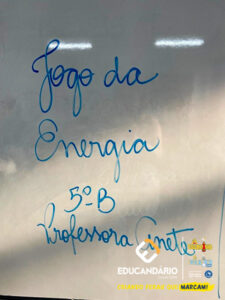 Jogo da
Energia
5º B
Professora Cinete
EDUCANDÁRIO
MARCAM!